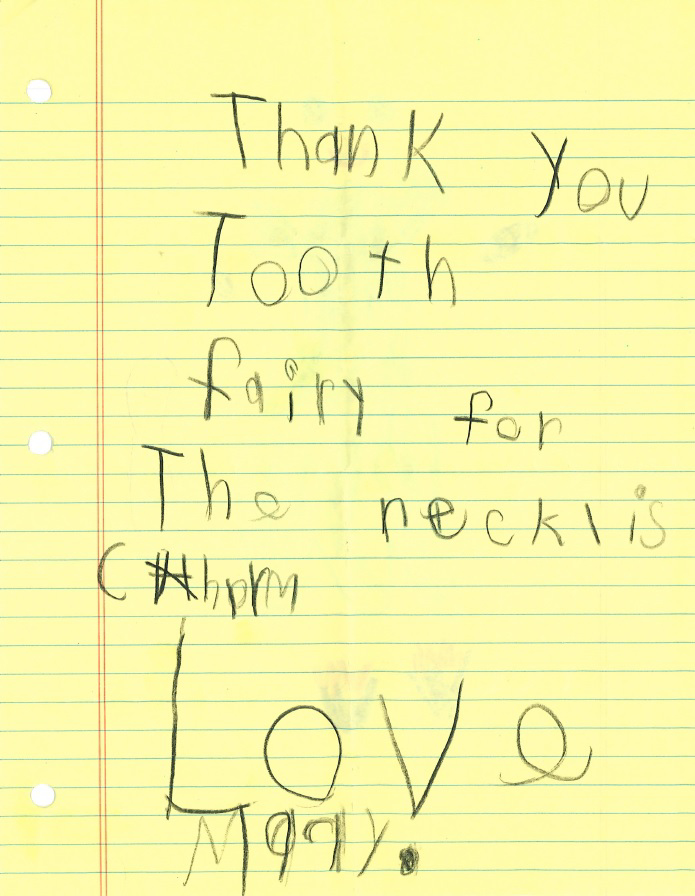 Thank you
Tooth
fairy for
The necklis
Love